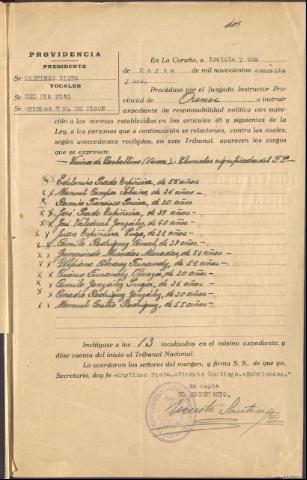 dos
PROVIDENCIA
PRESIDENTE
Sr. MARTINEZ NIETO
VOCALES
Sr. DEL RIO DIAZ
Sr. QUIROGA Y M. DE PISON
En La Coruña, a treinta y uno
de Marzo de mil novecientos cuarenta
y uno.
Procédase por el Juzgado Instructor Pro-
vincial de Orense a instruir
expediente de responsabilidad política con suje-
ción a las normas establecidas en los artículos 45 y siguientes de la
Ley, a las personas que a continuación se relacionan, contra las cuales,
según antecedentes recibidos, en este Tribunal, aparecen los cargos
que se expresan:
de Carballino (Orense).- Elementos significados del F.P.-
Prado Espiñeira, de 55 años
Manuel Campos de 34 años -
Ramiro Francisco de 30 años -
José Prado Espiñeira, de 39 años -
José González, de 40 años -
Juan Espiñeira Puga, de 32 años -
Camilo Rodríguez de 37 años -
Gumersindo de 54 años -
Ulpiano Alvarez Fernandez, de 52 años -
Fernandez de 30 años -
Camilo González Puga, de 36 años
Amadeo Rodríguez González, de 30 años -
Manuel Rodríguez, de 55 años -
Inclúyase a los 13 inculpados en el mismo expediente, y
dése cuenta del inicio al Tribunal Nacional.
Lo acordaron los señores del margen, y firma S. S. de que yo,
Secretario, doy fe.-Martínez Nieto.-Vicente Santiago.-Rubricados."
Es copia
EL SECRETARIO,
Vicente Santiago